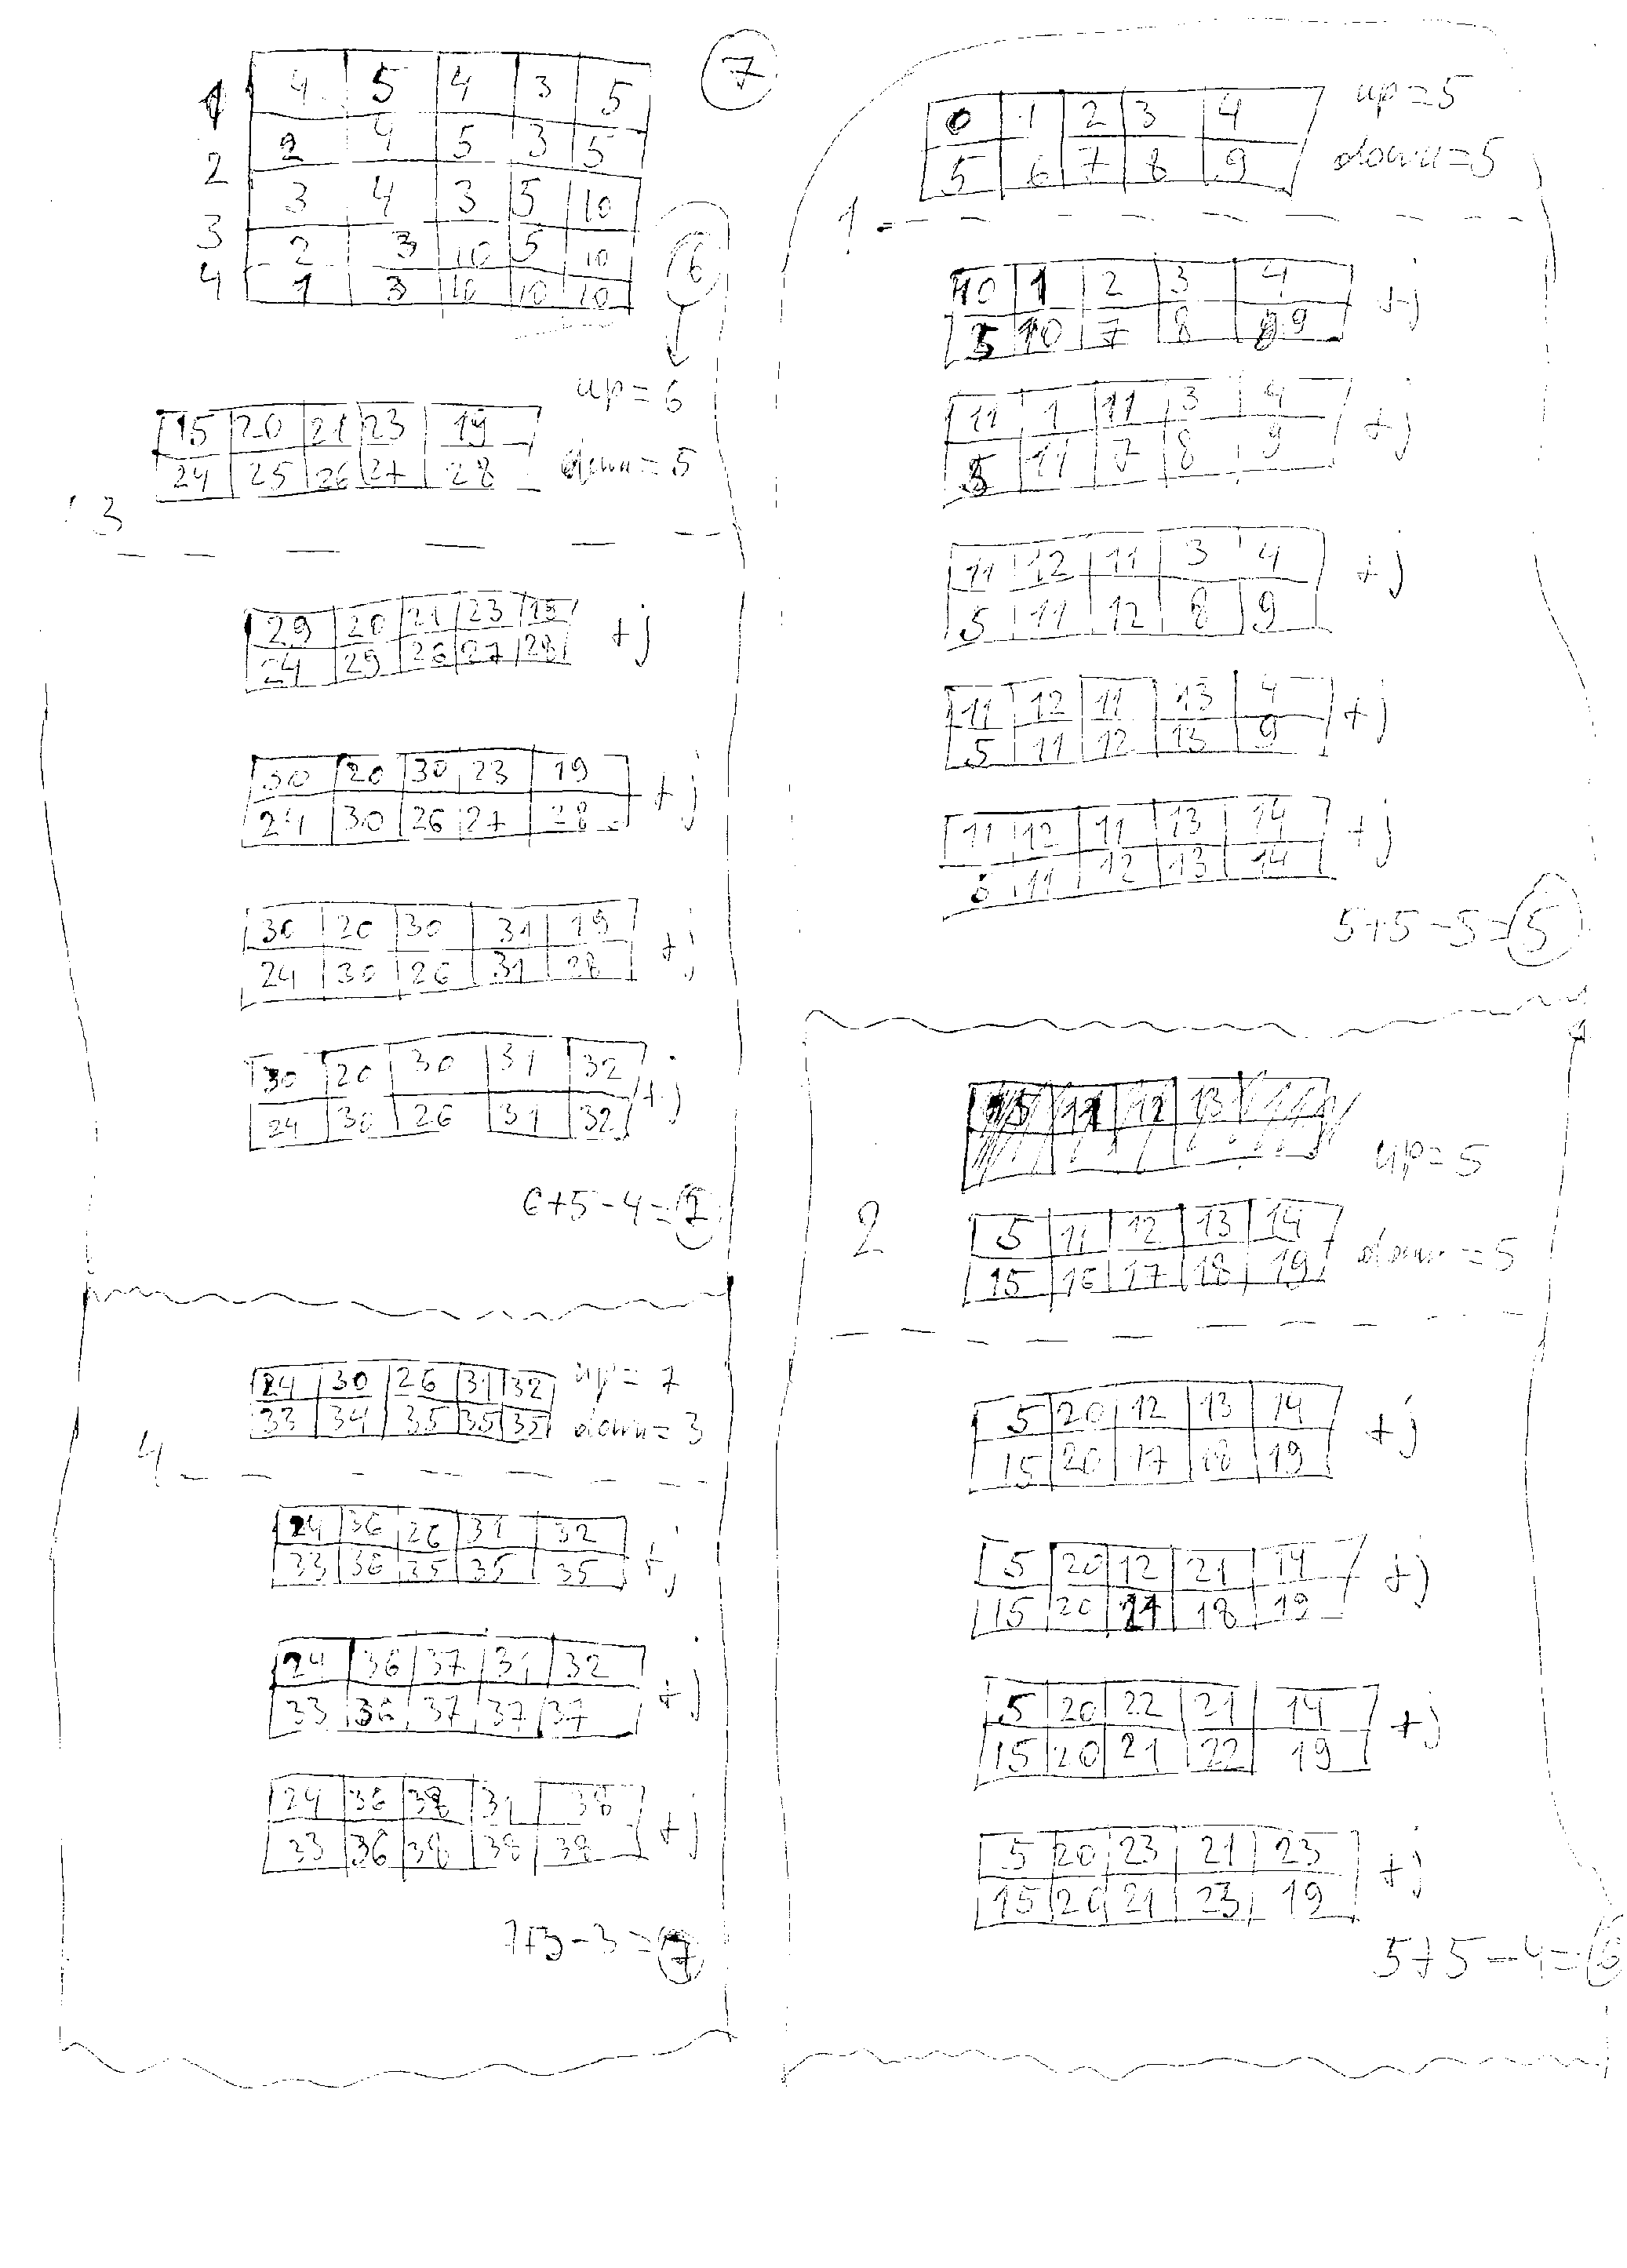 7
1 4 5 4 3 5
2 2 4 5 3 5
3 3 4 3 5 10
4 2 3 10 5 10
1 3 10 10 10
6
up=6
15 20 21 23 19
24 25 26 27 28
down=5
3
29 20 21 23 19
24 29 26 27 28
+j
30 20 30 23 19
24 30 26 27 28
+j
30 20 30 31 19
24 30 26 31 28
+j
30 20 30 31 32
24 30 26 31 32
+j
6+5-4=7
24 30 26 31 32
33 34 35 35 35
up=7
down=3
4
24 36 26 31 32
33 36 35 35 35
+j
24 36 37 31 32
33 36 37 37 37
+j
24 36 38 31 38
33 36 38 38 38
+j
7+3-3=7
0 1 2 3 4
5 6 7 8 9
up=5
down=5
1
10 1 2 3 4
5 10 7 8 9
+j
11 1 11 3 4
5 11 7 8 9
+j
11 12 11 3 4
5 11 12 8 9
+j
11 12 11 13 4
5 11 12 13 9
+j
11 12 11 13 14
5 11 12 13 14
+j
5+5-5=5
up=5
2
5 11 12 13 14
15 16 17 18 19
down=5
5 20 12 13 14
15 20 17 18 19
+j
5 20 12 21 14
15 20 21 18 19
+j
5 20 22 21 14
15 20 21 22 19
+j
5 20 23 21 23
15 20 21 23 19
+j
5+5-4=6